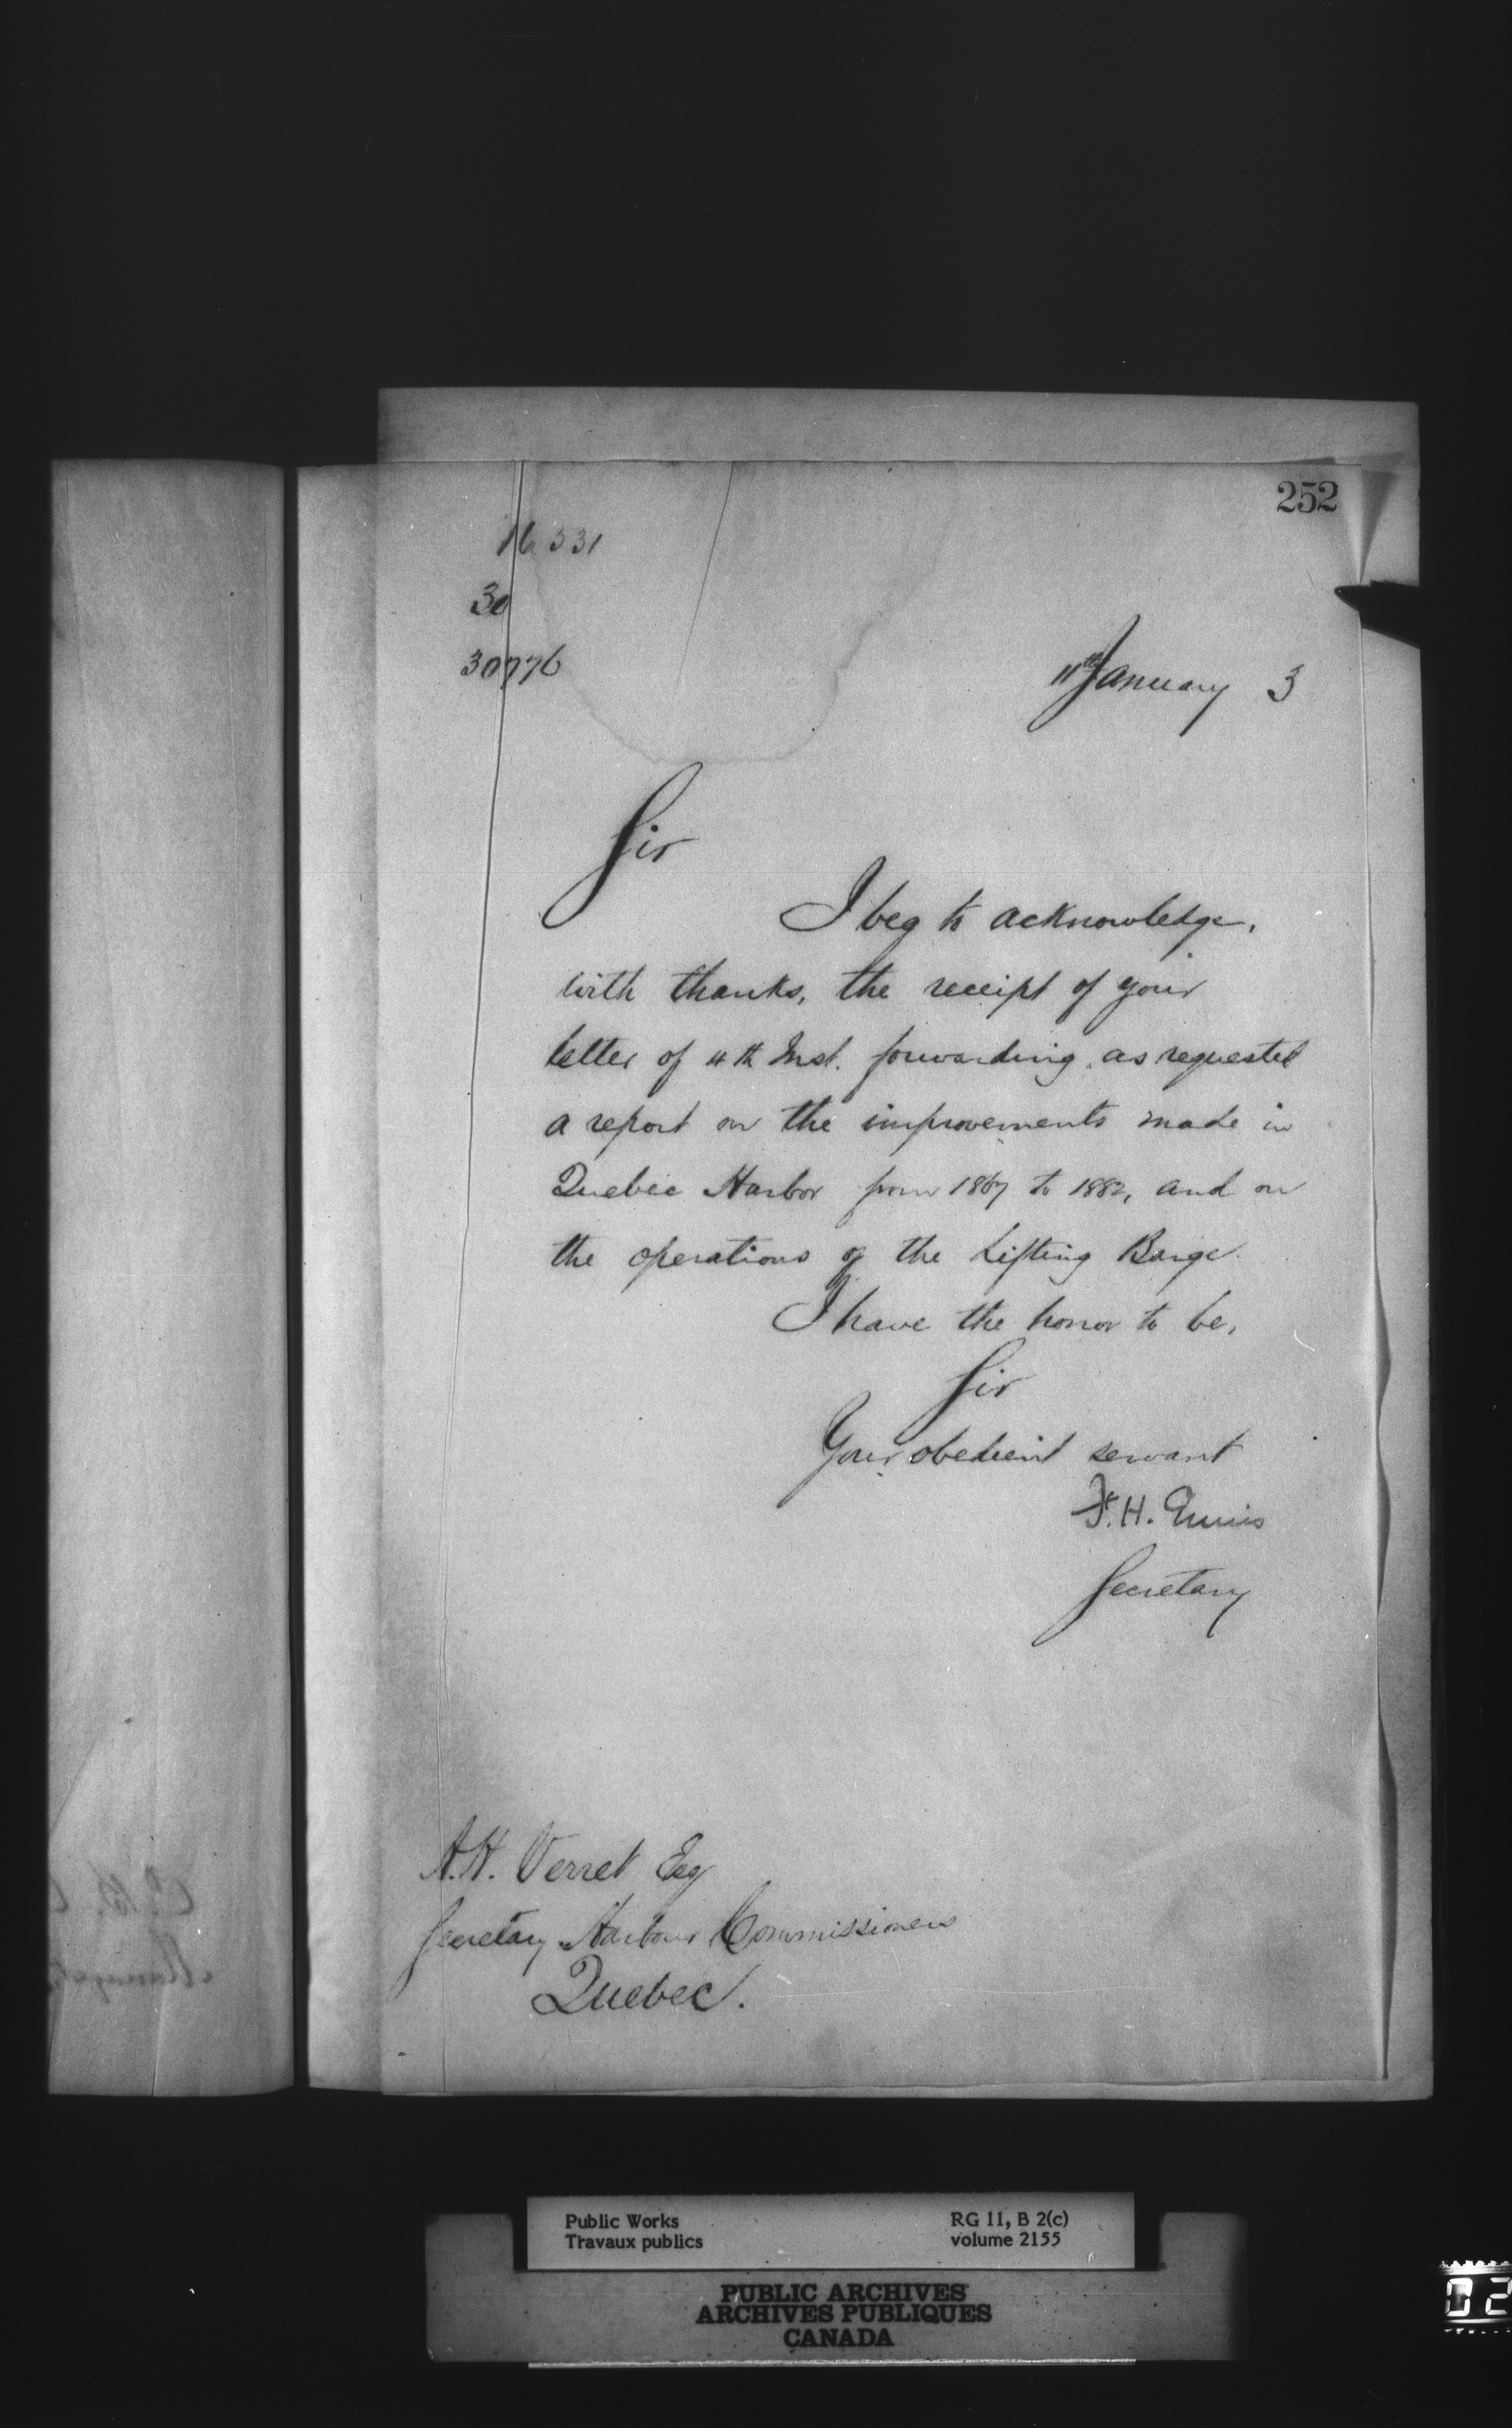 252
16331
30
30776
11th January 3
Sir
I beg to acknowledge,
with thanks, the receipt of your
letter of 4th Inst. forwarding, as requested
a report on the improvements made in
Quebec Harbor from 1867 to 1882, and on
the operations of the Lifting Barge.
I have the honor to be,
Sir
Your obedient servant
F. H. Ennis
Secretary
A. H. Verret Esq
Secretary Harbour Commissioners
Quebec.
Public Works
Travaux publics
RG 11, B 2(c)
volume 2155
PUBLIC ARCHIVES
ARCHIVES PUBLIQUES
CANADA
02